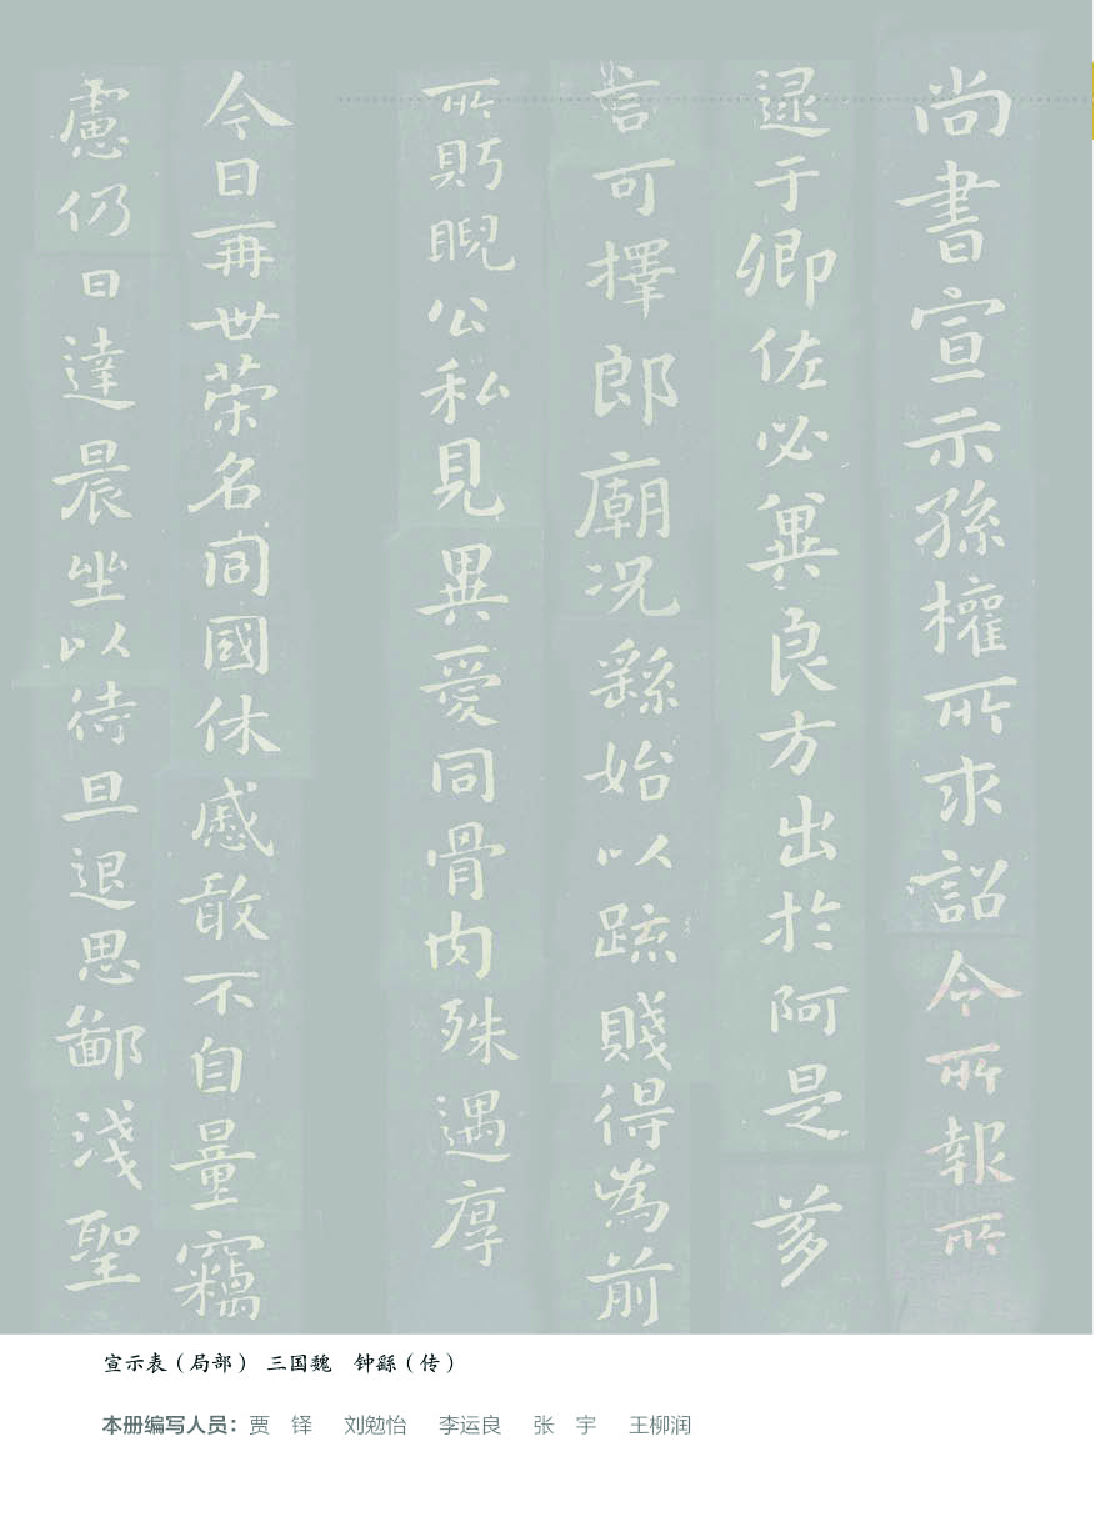 尚書宣示孫權所求詔令所報所
逯于卿佐必兾良方出於阿是芻
言可擇郎廟况繇始以疏賤得為前
所眄睨公私見異愛同骨肉殊遇厚
今日再世荣名同國休慼敢不自量竊
慮仍日達晨坐以待旦退思鄙淺聖
宣示表（局部） 三国魏 钟繇（传）
本册编写人员：贾 铎 刘勉怡 李运良 张 宇 王柳润